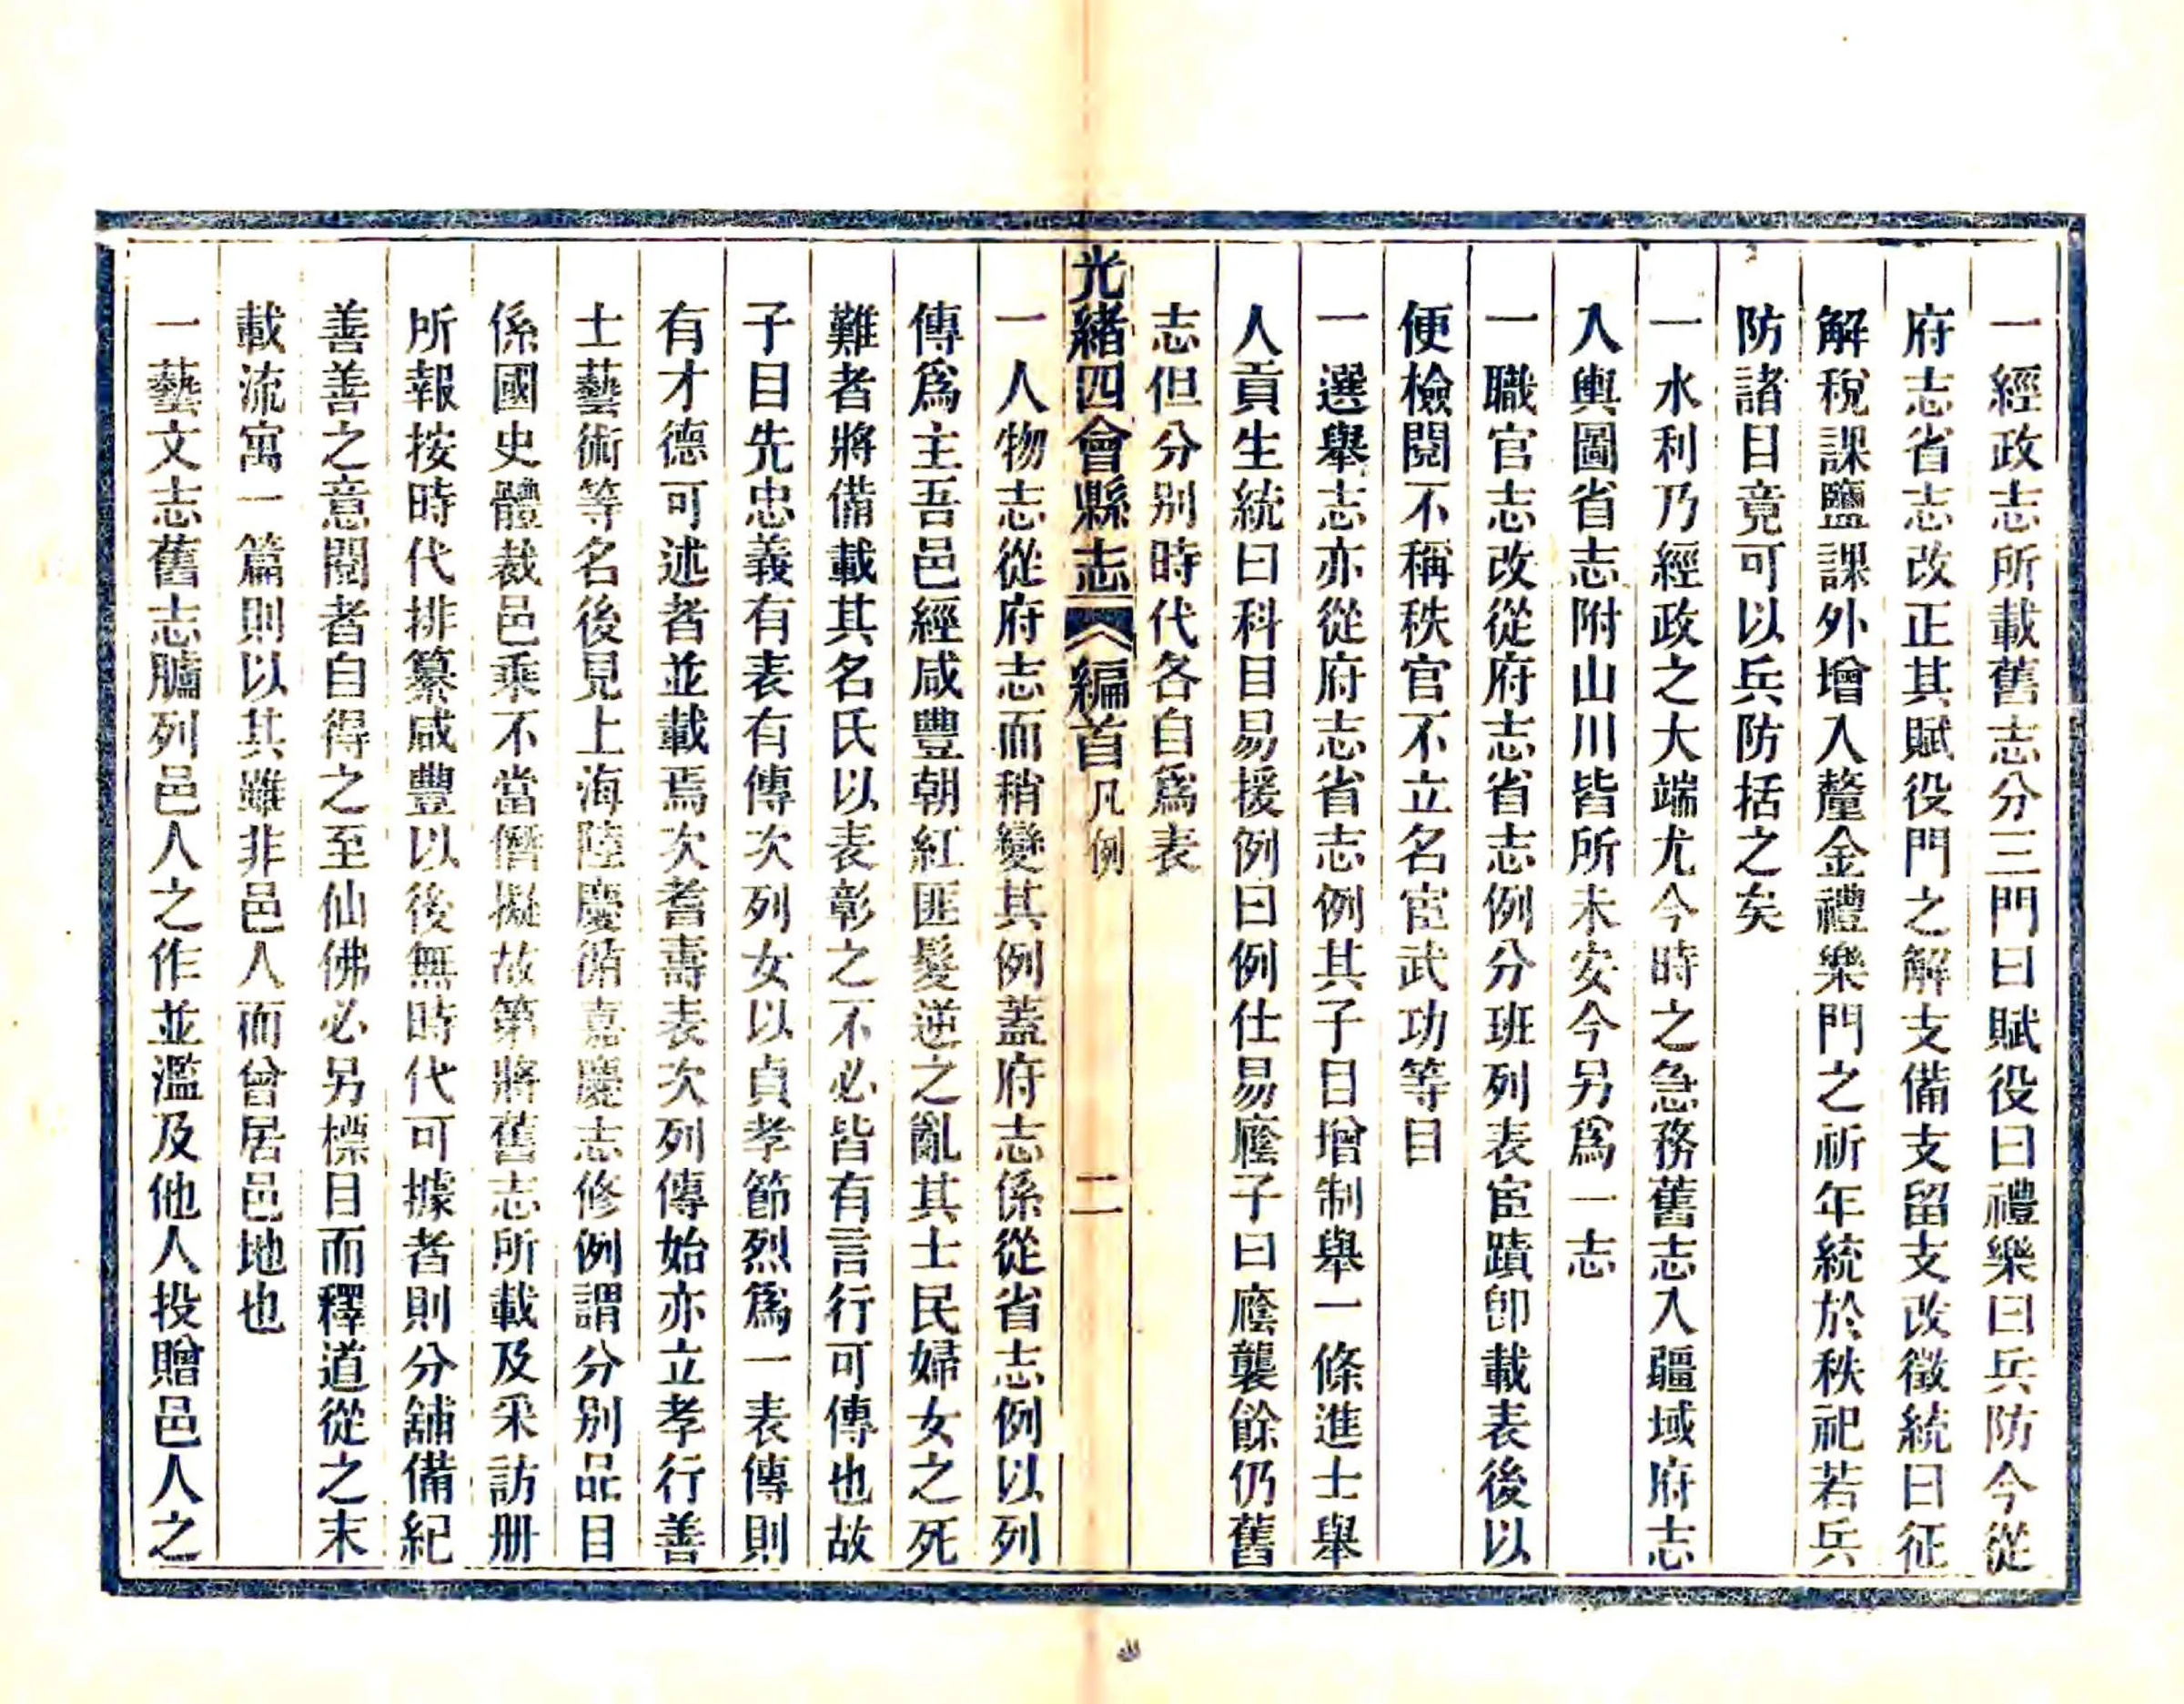 一經政志所載舊志分三門曰賦役曰禮樂曰兵防今從
府志省志改正其賦役門之解支備支留支改徵統曰征
解稅課鹽課外增入釐金禮樂門之祈年統於秩祀若兵
防諸目竟可以兵防括之矣
一水利乃經政之大端尤今時之急務舊志入疆域府志
入輿圖省志附山川皆所未安今另爲一志
一職官志改從府志省志例分班列表宦蹟卽載表後以
便檢閱不稱秩官不立名宦武功等目
一選舉志亦從府志省志例其子目增制舉一條進士舉
人貢生統曰科目易援例曰例仕易廕子曰廕襲餘仍舊
志但分别時代各自爲表
光緒四會縣志 編首 凡例 二
一人物志從府志而稍變其例蓋府志係從省志例以列
傳爲主吾邑經咸豐朝紅匪髮逆之亂其士民婦女之死
難者將備載其名氏以表彰之不必皆有言行可傳也故
子目先忠義有表有傳次列女以貞孝節烈爲一表傳則
有才德可述者並載焉次耆壽表次列傳始亦立孝行善
士藝術等名後見上海陸慶循嘉慶志修例謂分别品目
係國史體裁邑乘不當僭擬故第將舊志所載及采訪册
所報按時代排纂咸豐以後無時代可據者則分舖備紀
善善之意閱者自得之至仙佛必另標目而釋道從之末
載流寓一篇則以其雖非邑人而曾居邑地也
一藝文志舊志臚列邑人之作並濫及他人投贈邑人之